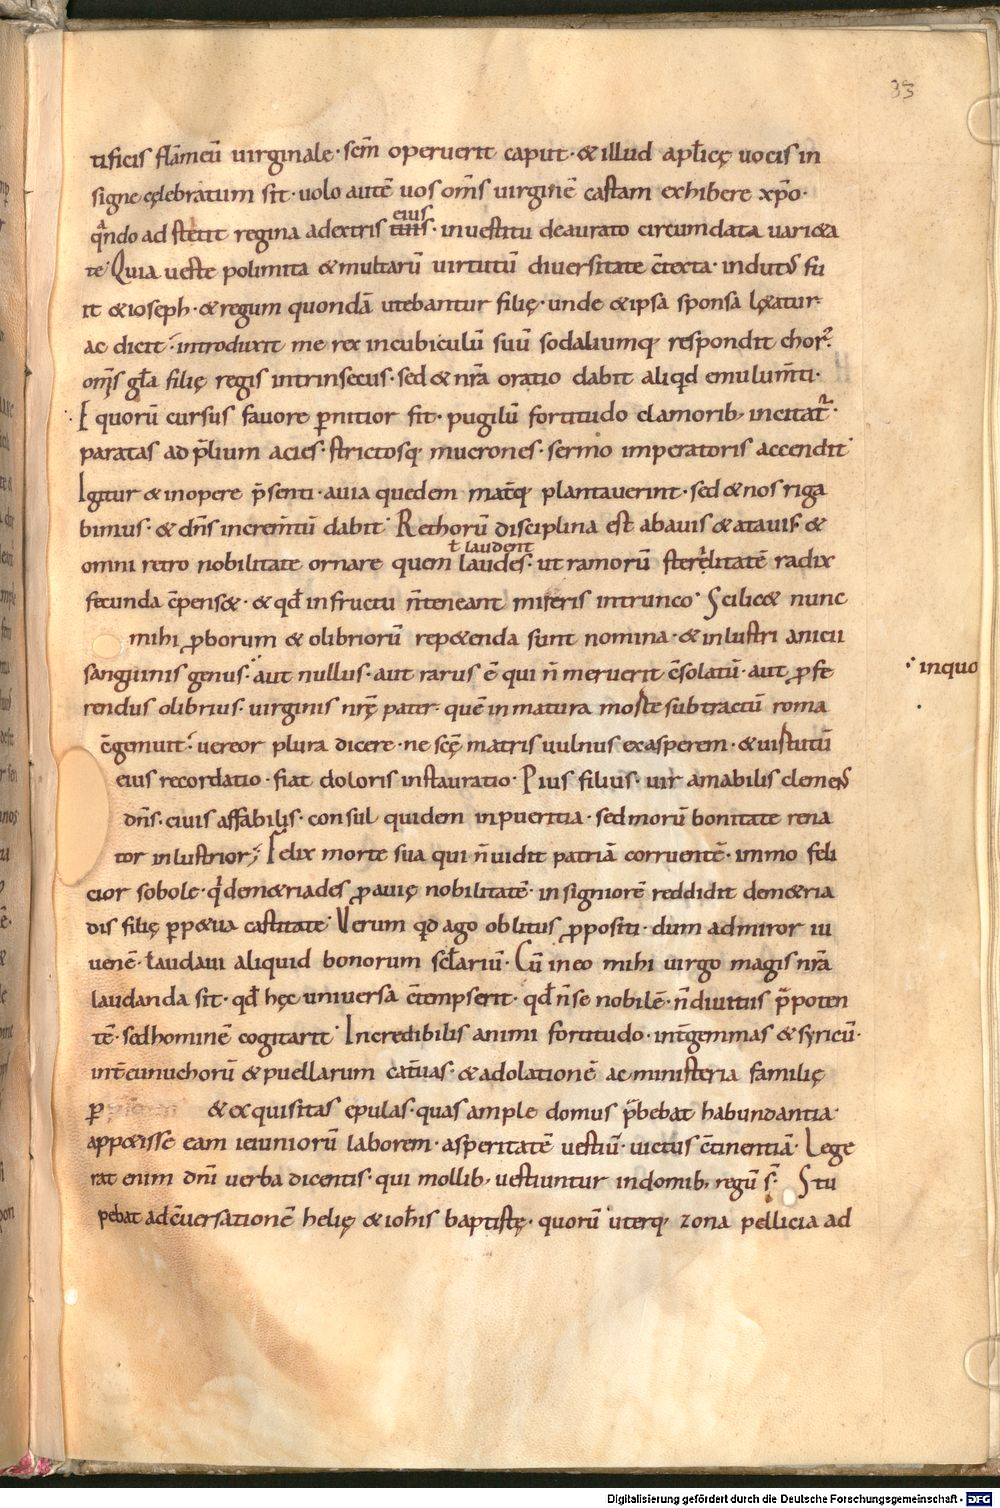 33
tificis flām̄eū uirginale · sc̄m operuerit caput · & illud apl̄icę uocis in
signe cęlebratum sit · uolo autē uos om̄s uirginē castam exhibere xp̄o ·
qn̄do ad stetit regina adextris tuis · inuestitu deaurato circumdata uari&a
eius
te · Quia ueste polimita & multarū uirtutū diuersitate c̄texta · indut᷒ fu
it & ioseph · & regum quondā utebantur filię · unde & ipsa sponsa lę&atur
ac dicit · introduxit me rex incubiculū suū sodaliumq; respondit chor᷒ ·
om̄s gl̄a filię regis intrinsecus · sed & nr̄a oratio dabit aliqd emulum̄ti ·
Equorū cursus fauore p̱nitior fit · pugilū fortitudo clamorib; incitat᷑ ·
paratas ad p̄lium acies · strictosq; mucrones · sermo imperatoris accendit ·
Igitur & inopere p̄senti · auia quedem mat̄q; plantauerint · sed & nos riga
bimus · & dn̄s increm̄tū dabit · Rethorū disciplina est abauis & atauis · &
omni retro nobilitate ornare quem laudes · ut ramorū sterelitatē radix
ł laudent
fecunda c̄pens& · & qd̄ infructu n̄ teneant miseris intrunco · Scilic& nunc
mihi ꝓborum & olibriorū rep&enda sunt nomina · & inlustri anicii
sanguinis genus · aut nullus · aut rarus ē qui n̄ meruerit c̄solatū · aut ꝓfe
∵ inquo
rendus olibrius · uirginis nr̄ę pater · quē inmatura morte subtractū roma
c̄gemuit · uereor plura dicere · ne sc̄ę matris uulnus exasperem · & uirtutū
eius recordatio · fiat doloris instauratio · Pius filius · uir amabilis clemens
dn̄s · ciuis affabilis · consul quidem inpueritia · sed morū bonitate sena
tor inlustrior; Felix morte sua qui n̄ uidit patriā corruentē · immo feli
cior sobole · qd̄ dem&riades ꝓauię nobilitatē · insigniorē reddidit dem&ria
dis filię ꝑp&ua castitate · Verum qd ago oblitus ꝓpositi · dum admiror iu
uenē · laudaui aliquid bonorum sc̄lariū · Cū ineo mihi uirgo magis nr̄a
laudanda sit · qd̄ hęc uniuersa c̄tempserit · qd̄ n̄ se nobilē · n̄ diuitiis p̄poten
tē · sed hominē cogitarit · Incredibilis animi fortitudo · int̄ gemmas & syricū ·
int̄ eunuchorū & puellarum cat̄uas · & adolationē ac ministeria familię
ꝑ & exquisitas epulas · quas ample domus p̄bebat habundantia ·
app&isse eam ieiuniorū laborem · asperitatē uestiū · uictus c̄tinentiā · Lege
rat enim dn̄i uerba dicentis · qui mollib; uestiuntur indomib; regū s̄ · Stu
pebat ad c̄uersationē helię & ioh̄is baptistę · quorū uterq; zona pellicia ad
Digitalisierung gefördert durch die Deutsche Forschungsgemeinschaft - DFG